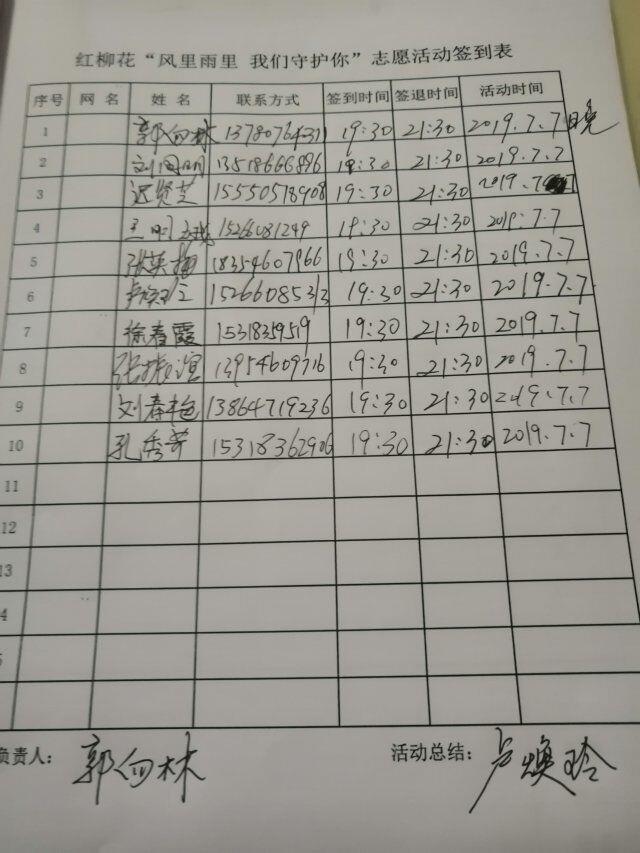 红柳花“风里雨里 我们守护你”志愿活动签到表
序号 网 名 姓 名 联系方式 签到时间 签退时间 活动时间
1 郭向林 13780764311 19:30 21:30 2019.7.7 晚
2 13518666896 19:30 21:30 2019.7.7
3 迟贤芝 15550518908 19:30 21:30
4 15266081249 19:30 21:30 2019.7.7
5 张英梅 18354607966 19:30 21:30 2019.7.7
6 15266085313 19:30 21:30 2019.7.7
7 徐春霞 15318359519 19:30 21:30 2019.7.7
8 13954609716 19:30 21:30 2019.7.7
9 刘春艳 13864719236 19:30 21:30 2019.7.7
10 孔秀芹 15318362906 19:30 21:30 2019.7.7
11
12
13
4
5
负责人： 郭向林 活动总结： 卢焕玲